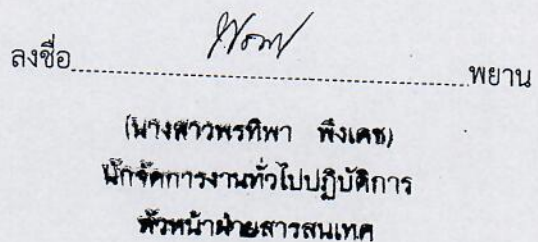 ลงชื่อ พยาน
(นางสาวพรทิพา พึ่งเดช)
นักจัดการงานทั่วไปปฏิบัติการ
หัวหน้าฝ่ายสารสนเทศ